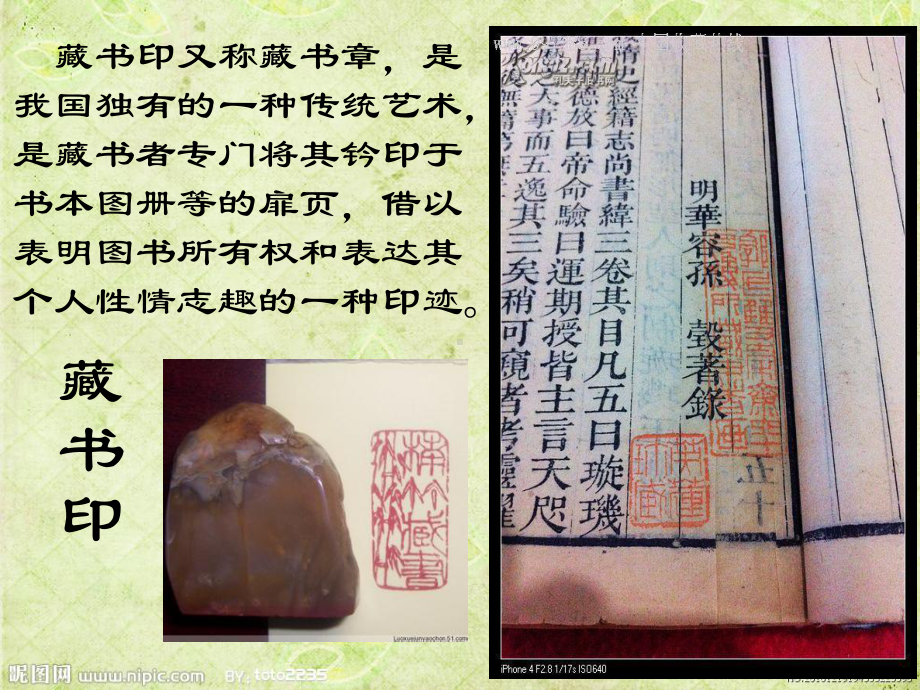 藏书印又称藏书章，是
我国独有的一种传统艺术，
是藏书者专门将其钤印于
书本图册等的扉页，借以
表明图书所有权和表达其
个人性情志趣的一种印迹。
藏
书
印
明華容孫　瑴著錄
隋史經籍志尚書緯三卷其目凡五曰璇璣
德放曰帝命驗曰運期授皆主言天咫
大事而五逸其三矣稍可窺者考靈
藏書
五十
Luoxuejunyaochan.51.com
iPhone 4 F2.8 1/17s ISO640
昵图网 www.nipic.com BY: toto2235